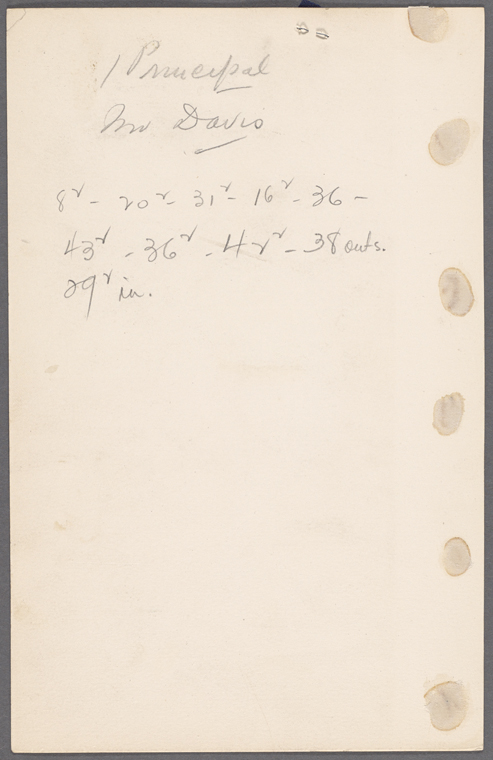 1 Principal
Mr Davis
8² - 20² - 31² - 16² - 36 -
43² - 36² - 42² - 38 outs.
29² in.